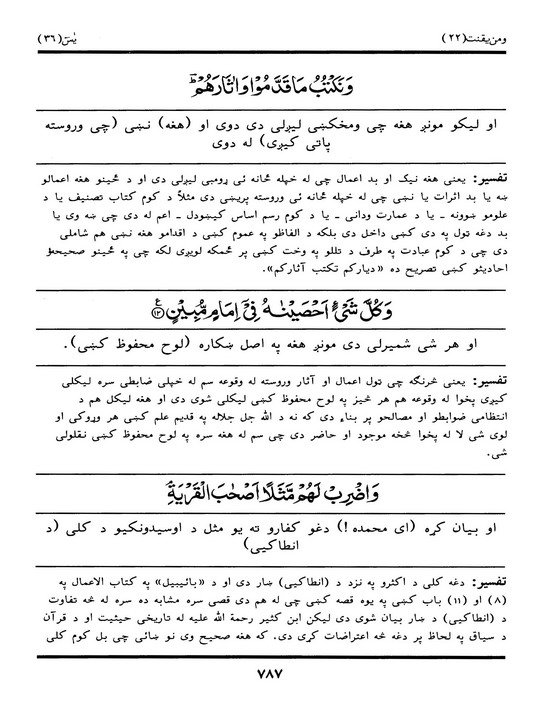 ومن يقنت(۲۲)
يٰسٓ(۳۶)
وَنَكۡتُبُ مَا قَدَّمُوۡا وَاٰثَارَهُمۡ ؕ
او ليكو مونږ هغه چی ومخكښی ليږلی دی دوی او (هغه) نښی (چی وروسته
پاتی كيږی) له دوی
تفسير: يعنی هغه نيک او بد اعمال چی له خپله ځانه ئی ړومبی ليږلی دی او د ځينو هغه اعمالو
ښه يا بد اثرات يا نښی چی له خپله ځانه ئی وروسته پريږدی مثلاً د كوم كتاب تصنيف يا د
علومو ښوونه ـ يا د عمارت ودانی ـ يا د كوم رسم اساس كيښودل ـ اعم له دی چی ښه وی يا
بد دغه ټول په دی كښی داخل دی بلكه د الفاظو په عموم كښی د اقدامو هغه نښی هم شاملی
دی چی د كوم عبادت په طرف د تللو په وخت كښی پر ځمكه لويږی لكه چی په ځينو صحيحؤ
احاديثو كښی تصريح ده «دياركم تكتب آثاركم».
وَكُلَّ شَىۡءٍ اَحۡصَيۡنٰهُ فِىۡۤ اِمَامٍ مُّبِيۡنٍ ﴿۱۲﴾ ع
او هر شی شميرلی دی مونږ هغه په اصل ښكاره (لوح محفوظ كښی).
تفسير: يعنی څرنگه چی ټول اعمال او آثار وروسته له وقوعه سم له خپلی ضابطی سره ليكلی
كيږی پخوا له وقوعه هم هر څيز په لوح محفوظ كښی ليكلی شوی دی او هغه ليكل هم د
انتظامی ضوابطو او مصالحو پر بناء دی كه نه د الله جل جلاله په قديم علم كښی هر وړوكی او
لوی شی لا له پخوا څخه موجود او حاضر دی چی سم له هغه سره په لوح محفوظ كښی نقلولی
شی.
وَاضۡرِبۡ لَهُمۡ مَّثَلًا اَصۡحٰبَ الۡقَرۡيَةِ ۘ
او بيان كړه (ای محمده!) دغو كفارو ته يو مثل د اوسيدونكيو د كلی (د
انطاكيی)
تفسير: دغه كلی د اكثرو په نزد د (انطاكيی) ښار دی او د «بائيبيل» په كتاب الاعمال په
(۸) او (۱۱) باب كښی په يوه قصه كښی چی له هم دی قصی سره مشابه ده سره له څه تفاوت
د (انطاكيی) د ښار بيان شوی دی ليكن ابن كثير رحمة الله عليه له تاريخی حيثيت او د قرآن
د سياق په لحاظ پر دغه څه اعتراضات كړی دی. كه هغه صحيح وی نو ښائی چی بل كوم كلی
۷۸۷